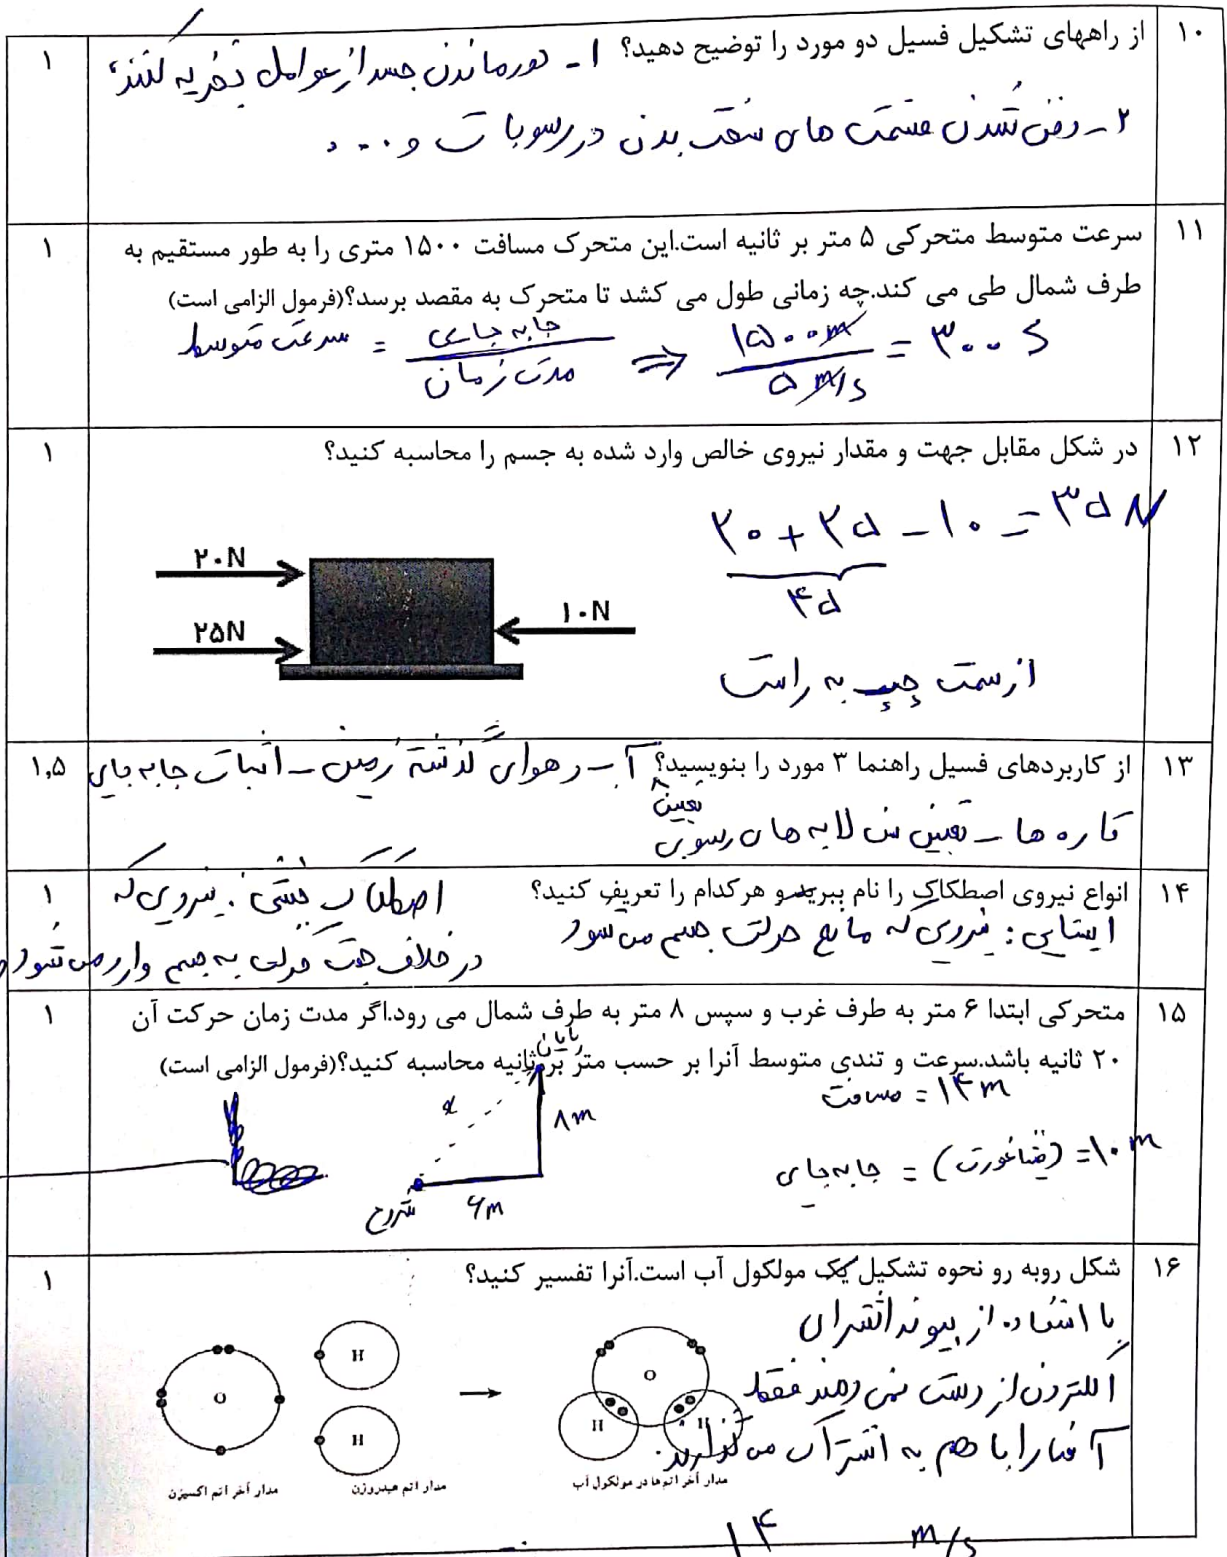 ۱۰ از راههای تشکیل فسیل دو مورد را توضیح دهید؟ ۱- دور ماندن جسد از عوامل تجزیه کننده ۱
۲- دفن شدن قسمت های سخت بدن در رسوبات و ...
۱۱ سرعت متوسط متحرکی ۵ متر بر ثانیه است.این متحرک مسافت ۱۵۰۰ متری را به طور مستقیم به ۱
طرف شمال طی می کند.چه زمانی طول می کشد تا متحرک به مقصد برسد؟(فرمول الزامی است)
سرعت متوسط = جابه جایی / مدت زمان ⇒ ۱۵۰۰m / ۵ m/s = ۳۰۰ s
۱۲ در شکل مقابل جهت و مقدار نیروی خالص وارد شده به جسم را محاسبه کنید؟ ۱
۲۰ + ۲۵ - ۱۰ = ۳۵ N
۴۵
۲۰N
۲۵N
۱۰N
از سمت چپ به راست
۱۳ از کاربردهای فسیل راهنما ۳ مورد را بنویسید؟ آب و هوای گذشته زمین - اثبات جابه جایی ۱,۵
تعیین
قاره ها - تعیین سن لایه های رسوبی
۱۴ انواع نیروی اصطکاک را نام ببرید و هرکدام را تعریف کنید؟ اصطکاک جنبشی: نیرویی که ۱
ایستایی: نیرویی که مانع حرکت جسم می شود
در خلاف جهت حرکت به جسم وارد می شود
۱۵ متحرکی ابتدا ۶ متر به طرف غرب و سپس ۸ متر به طرف شمال می رود.اگر مدت زمان حرکت آن ۱
۲۰ ثانیه باشد.سرعت و تندی متوسط آنرا بر حسب متر بر ثانیه محاسبه کنید؟(فرمول الزامی است)
پایان
مسافت = ۱۴m
۸m
جابه جایی = (فیثاغورث) = ۱۰m
شروع
۶m
۱۶ شکل روبه رو نحوه تشکیل یک مولکول آب است.آنرا تفسیر کنید؟ ۱
با استفاده از پیوند اشتراکی
الکترون از دست نمی دهند فقط
آنها را با هم به اشتراک می گذارند.
O
H
H
O
H
H
مدار آخر اتم اکسیژن
مدار اتم هیدروژن
مدار آخر اتم‌ها در مولکول آب
۱۴ m/s